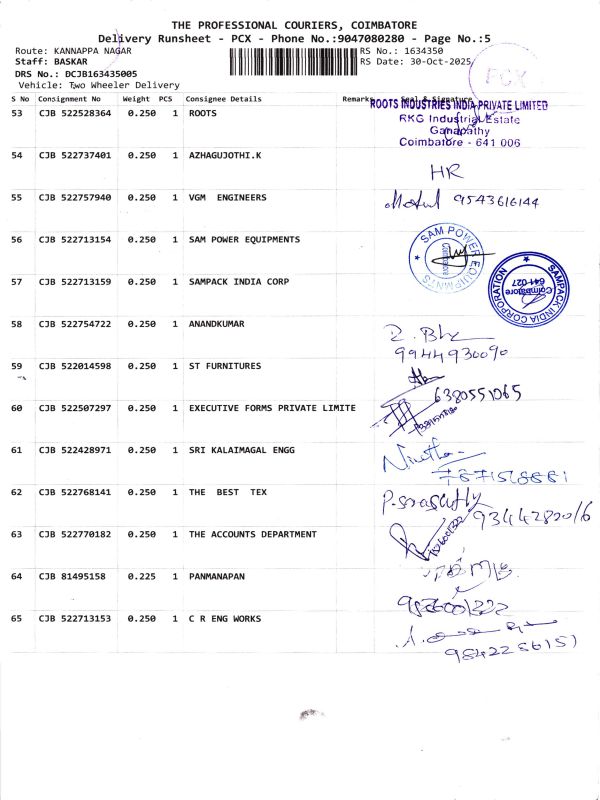 THE PROFESSIONAL COURIERS, COIMBATORE
Delivery Runsheet - PCX - Phone No.:9047080280 - Page No.:5
Route: KANNAPPA NAGAR
Staff: BASKAR
DRS No.: DCJB163435005
Vehicle: Two Wheeler Delivery
RS No.: 1634350
RS Date: 30-Oct-2025
PCX
S No Consignment No Weight PCS Consignee Details Remarks Seal & Signature
53 CJB 522528364 0.250 1 ROOTS
ROOTS INDUSTRIES INDIA PRIVATE LIMITED
RKG Industrial Estate
Ganapathy
Coimbatore - 641 006
54 CJB 522737401 0.250 1 AZHAGUJOTHI.K
HR
55 CJB 522757940 0.250 1 VGM ENGINEERS
9543616144
56 CJB 522713154 0.250 1 SAM POWER EQUIPMENTS
SAM POWER EQUIPMENTS
Coimbatore
57 CJB 522713159 0.250 1 SAMPACK INDIA CORP
SAMPACK INDIA CORPORATION
Coimbatore
641 027
58 CJB 522754722 0.250 1 ANANDKUMAR
9944930090
59 CJB 522014598 0.250 1 ST FURNITURES
6380551065
60 CJB 522507297 0.250 1 EXECUTIVE FORMS PRIVATE LIMITE
61 CJB 522428971 0.250 1 SRI KALAIMAGAL ENGG
62 CJB 522768141 0.250 1 THE BEST TEX
63 CJB 522770182 0.250 1 THE ACCOUNTS DEPARTMENT
64 CJB 81495158 0.225 1 PANMANAPAN
65 CJB 522713153 0.250 1 C R ENG WORKS